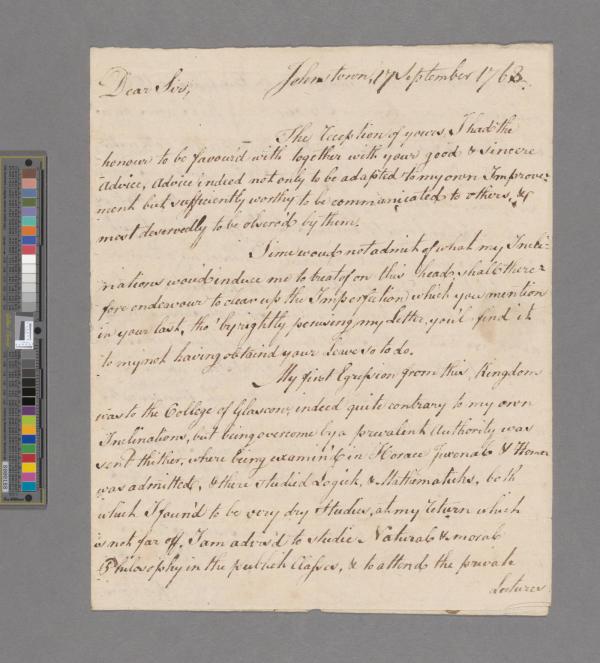 Johnstown, 17 September 1763.
Dear Sir,
The Reception of yours, I had the
honour to be favour'd with together with your good & sincere
Advice, Advice indeed not only to be adapted to my own Improve-
ment but sufficiently worthy to be communicated to others, &
most deservedly to be observ'd by them.
Time wou'd not admit of what my Incli-
nations wou'd induce me to treat of on this head, shall there-
fore endeavour to clear up the Imperfection which you mention
in your last, tho' by rightly perusing my Letter, you'll find it
to my not having obtain'd your Leave so to do.
My first Egression from this Kingdom
was to the College of Glascow, indeed quite contrary to my own
Inclinations, but being overcome by a prevalent Authority was
sent thither, where being examin'd in Horace Juvenal & Homer
was admitted, & there studied Logick, & Mathematicks, both
which I found to be very dry Studies, at my return which
is not far off, I am advis'd to studie Natural & moral
Philosophy in the publick Classes, & to attend the private
Lectures